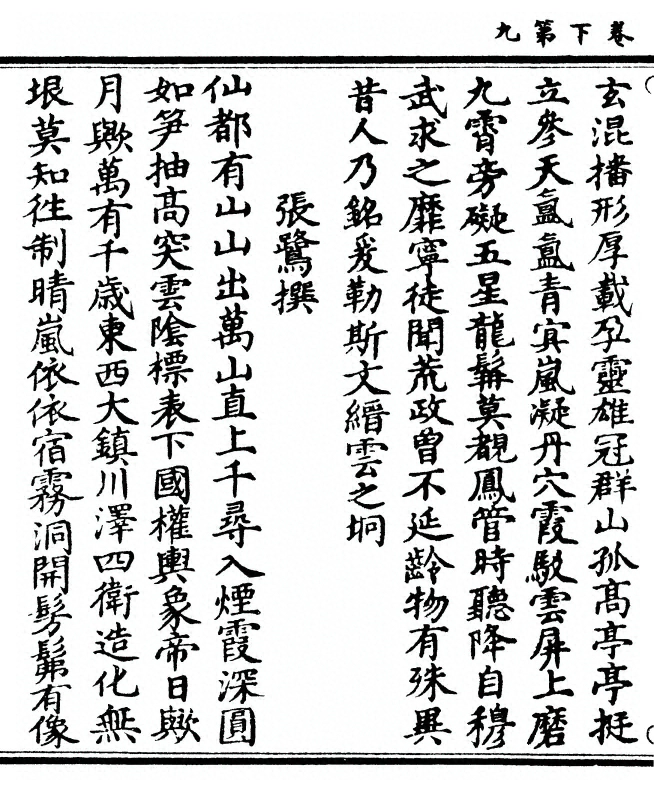 卷下第九
玄混播形厚載孕靈雄冠群山孤髙亭亭挺
立參天氳氳青㝠嵐凝丹穴霞駮雲屏上磨
九霄旁礙五星龍髯莫覩鳳管時聽降自穆
武求之靡寧徒聞荒政曾不延齡物有殊異
昔人乃銘爰勒斯文縉雲之坰
張鷺撰
仙都有山山出萬山直上千尋入煙霞深圓
如笋抽髙突雲陰標表下國權輿象帝日歟
月歟萬有千歲東西大鎮川澤四衛造化無
垠莫知徃制晴嵐依依宿霧洞開髣髴有像